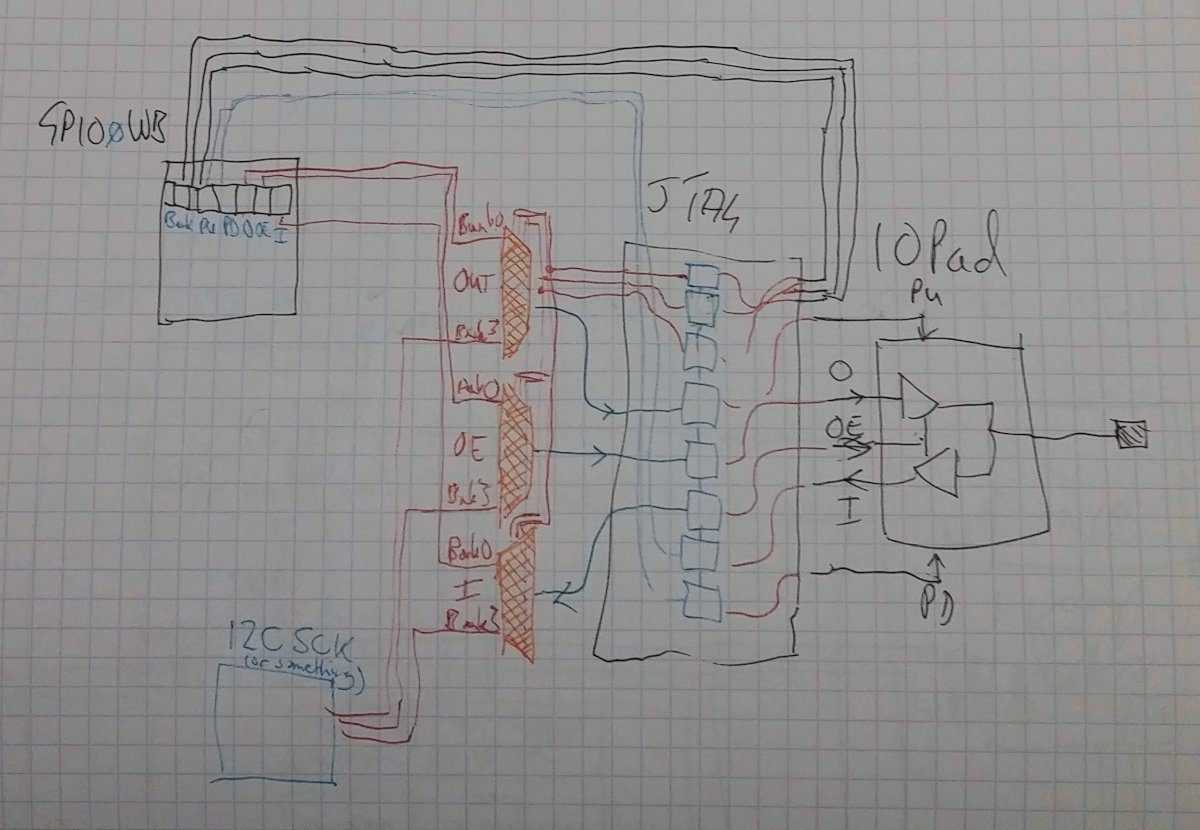 GPIO0WB
Bank PU PD O OE I
JTAG
Bank0
OUT
Bank3
IOPad
PU
O
OE
I
PD
Bank0
OE
Bank3
Bank0
I
Bank3
I2C SCK
(or something)